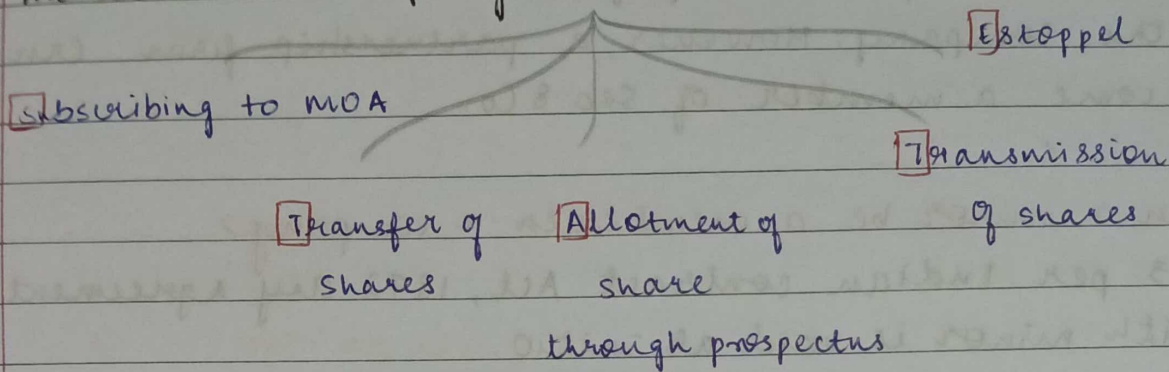 Estoppel
Subscribing to MOA
Transmission
of shares
Transfer of
shares
Allotment of
share
through prospectus